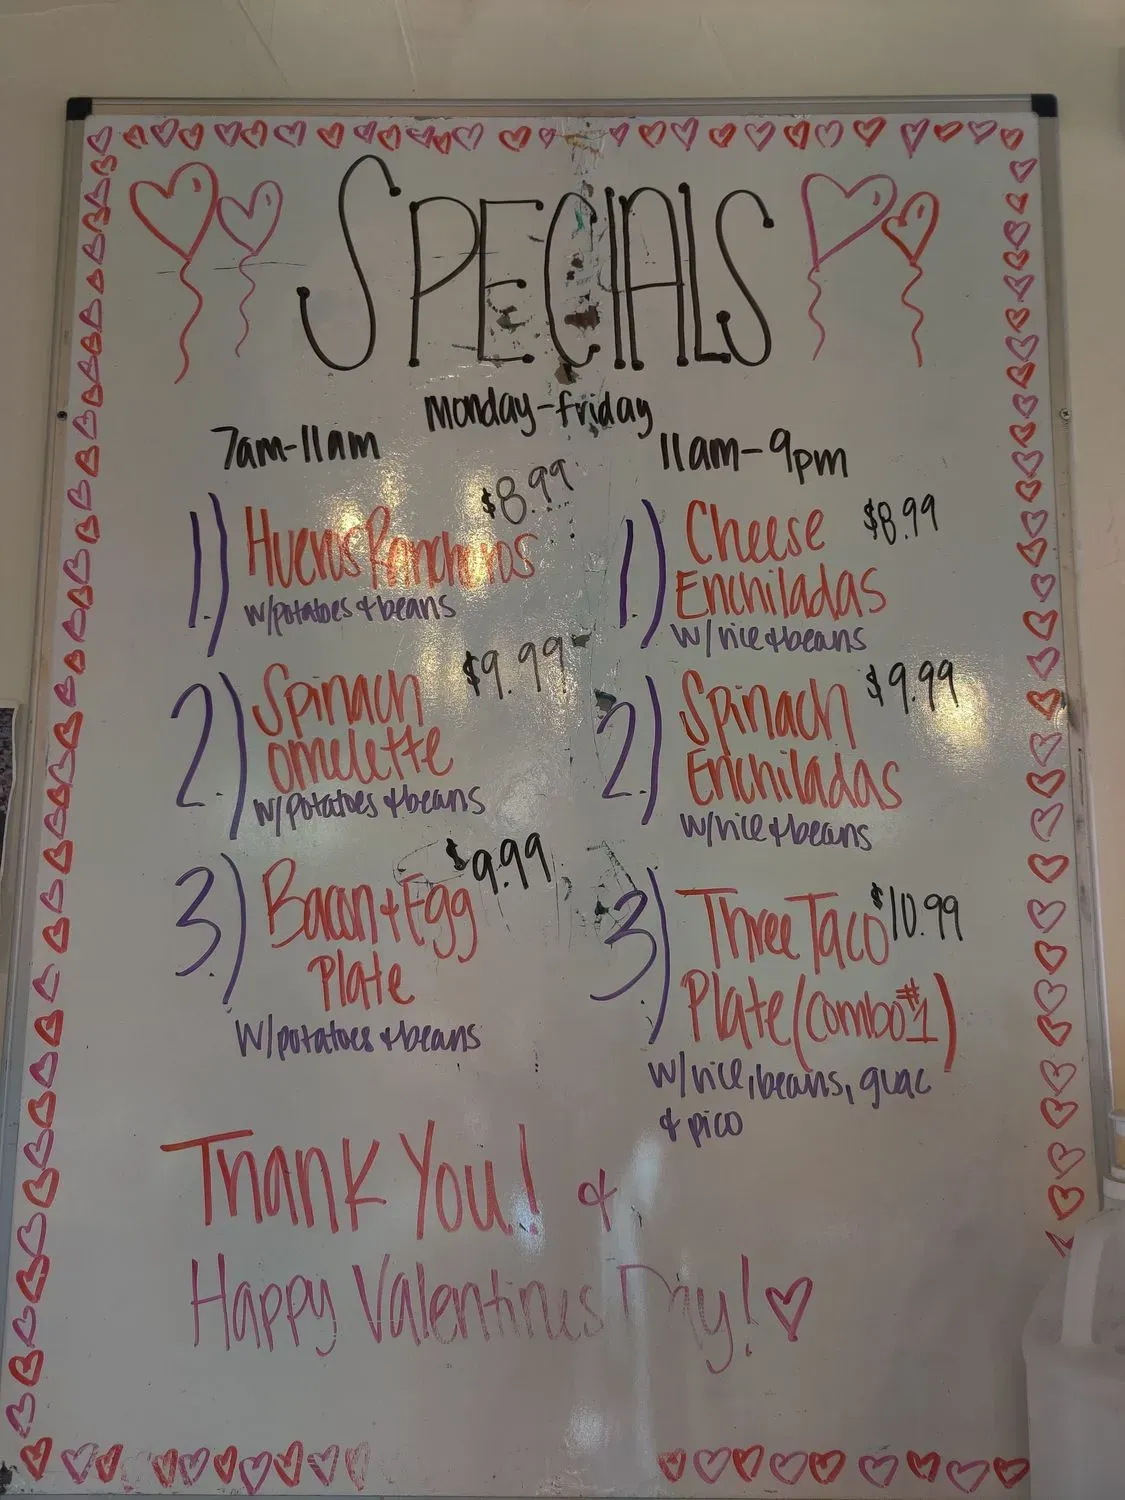 SPECIALS
monday-friday
7am-11am
1.) Huevos Rancheros $8.99
w/potatoes & beans
2.) Spinach $9.99
omelette
w/potatoes & beans
3.) Bacon + Egg $9.99
Plate
w/potatoes & beans
11am-9pm
1.) Cheese $8.99
Enchiladas
w/rice & beans
2.) Spinach $9.99
Enchiladas
w/rice & beans
3.) Three Taco $10.99
Plate (Combo #1)
w/rice, beans, guac
& pico
Thank You! &
Happy Valentines Day!